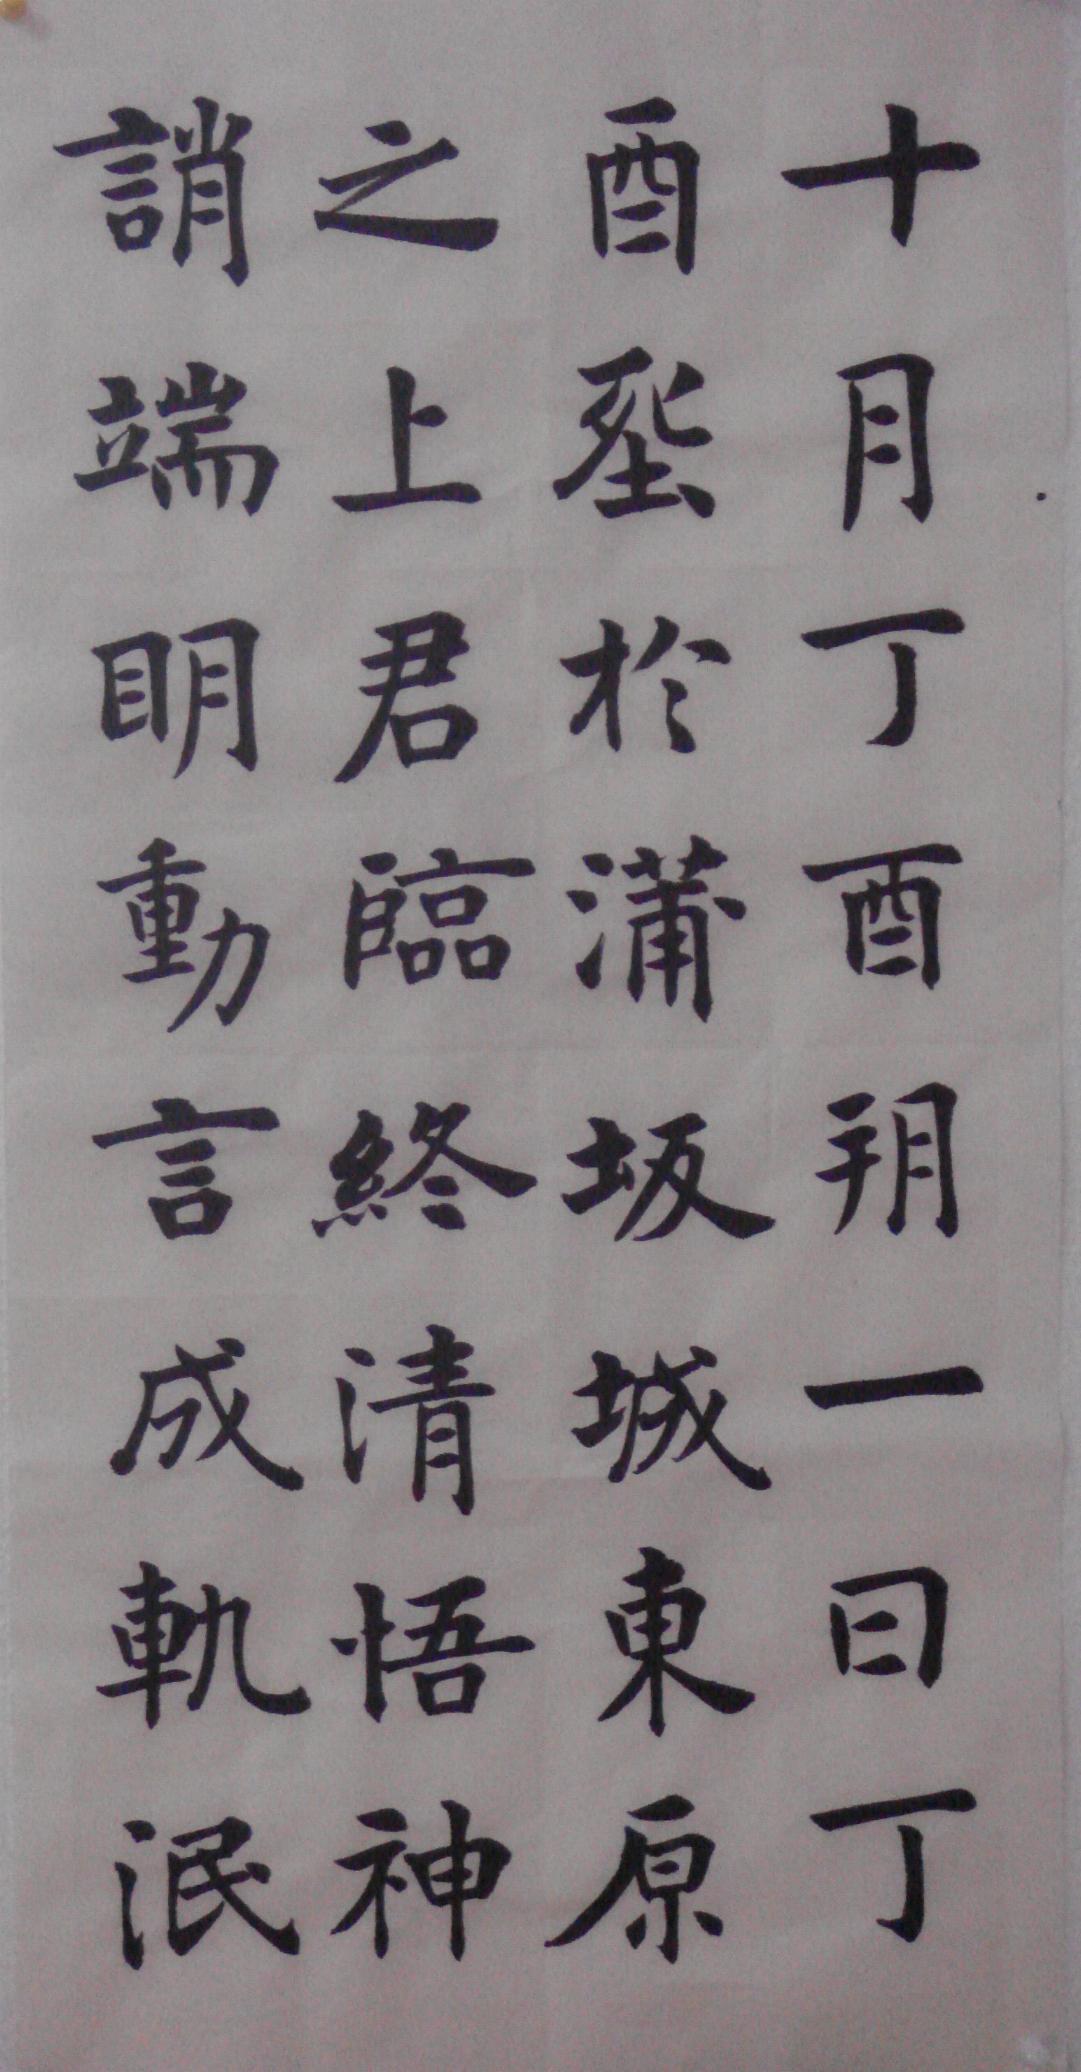 十月丁酉朔一日丁
酉塟於蒲坂城東原
之上君臨終清悟神
誚端眀動言成軌泯